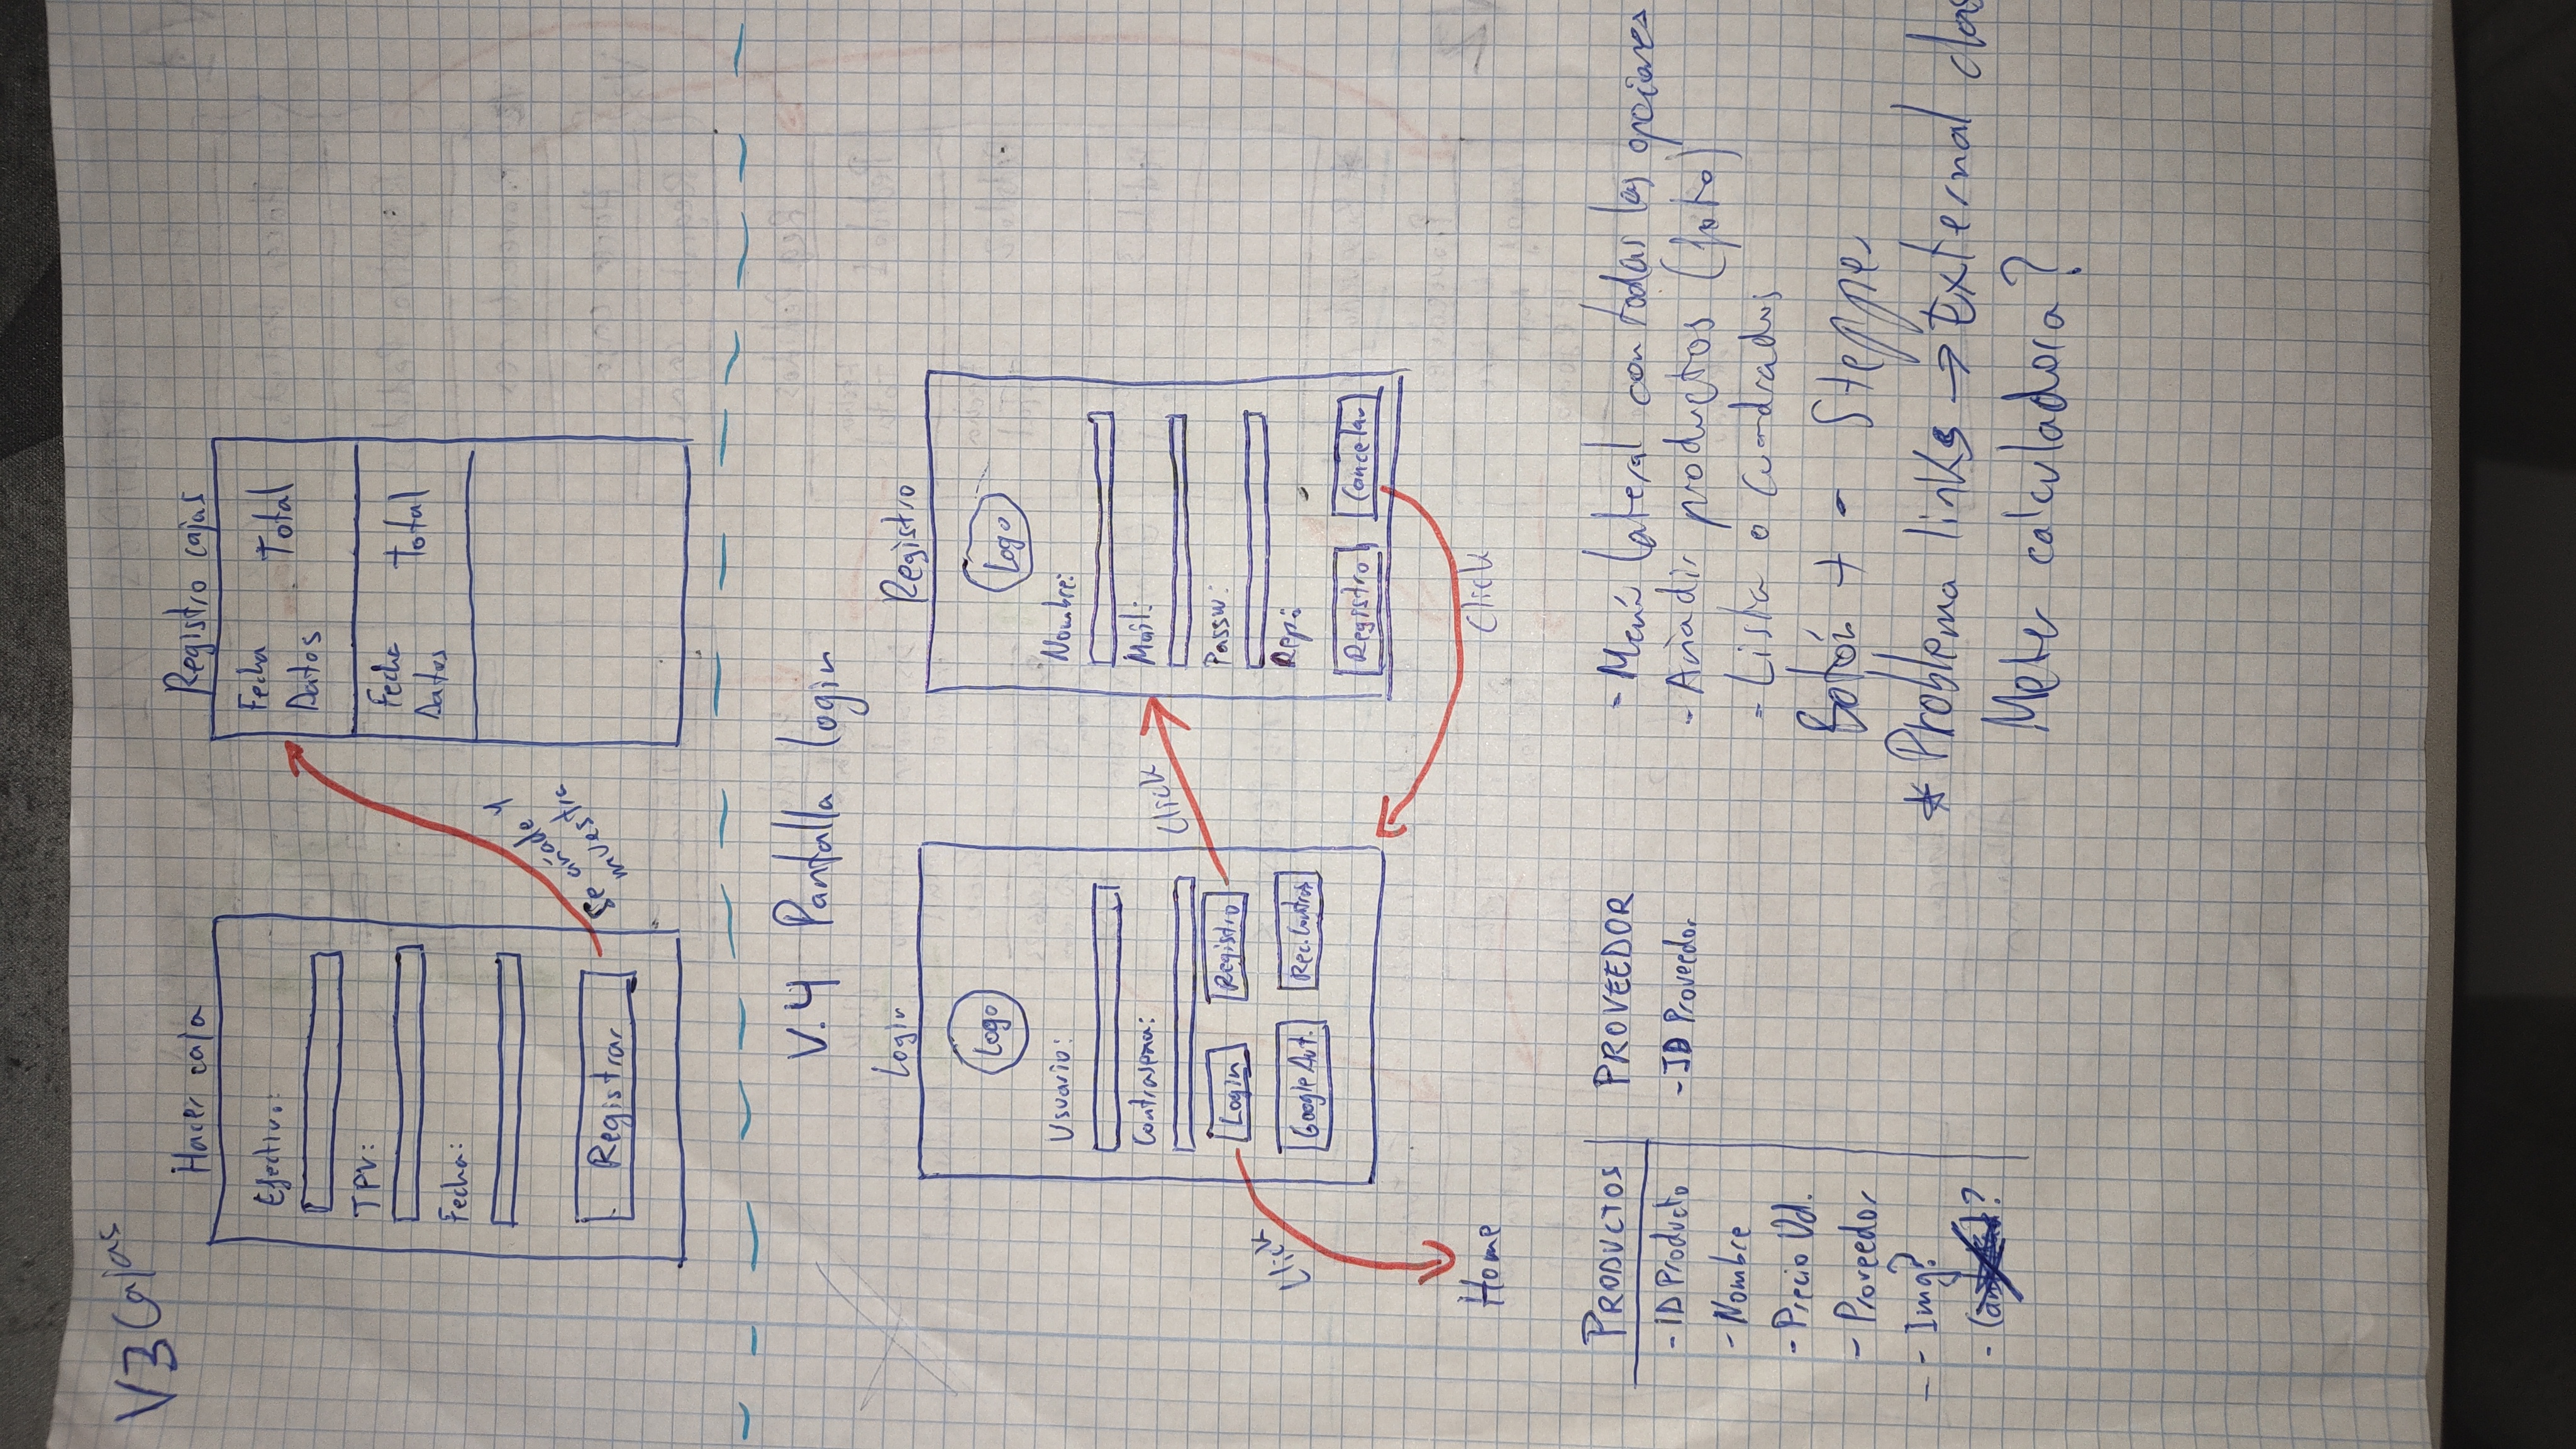 V3 Cajas
Hacer caja
Efectivo:
TPV:
Fecha:
Registrar
Se añade y
muestra
Registro cajas
Fecha
Datos
Total
Fecha
Datos
Total
V.4 Pantalla login
Login
Logo
Usuario:
Contraseña:
Login
Registro
Google Aut.
Rec. Contras
Click
Home
Click
Registro
Logo
Nombre:
Mail:
Passw:
Rep:
Registro
Cancelar
Click
PRODUCTOS
- ID Producto
- Nombre
- Precio Ud.
- Proveedor
- Img?
PROVEEDOR
- ID Proveedor
- Menú lateral con todas las opciones
- Añadir productos (foto)
- Lista o cuadrados
Botón + - Stepper
* Problema links → External
Meter calculadora?